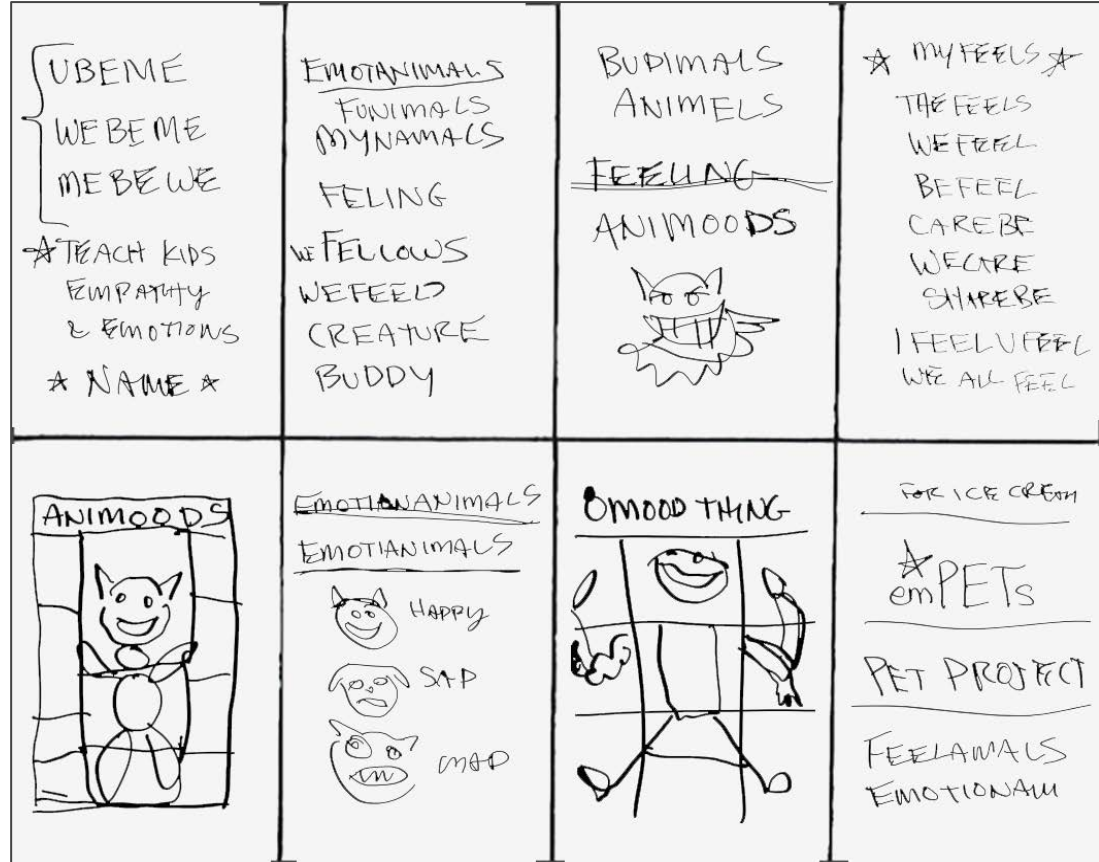 UBEME
WEBEME
MEBEWE
TEACH KIDS
EMPATHY
& EMOTIONS
NAME
EMOTANIMALS
FUNIMALS
MYNAMALS
FELING
WE FELLOWS
WEFEELD
CREATURE
BUDDY
BUDIMALS
ANIMELS
FEELING
ANIMOODS
MY FEELS
THE FEELS
WE FEEL
BE FEEL
CAREBE
WECARE
SHAREBE
I FEEL U FEEL
WE ALL FEEL
ANIMOODS
EMOTIANANIMALS
EMOTIANIMALS
HAPPY
SAD
MAD
MOOD THING
FOR ICE CREAM
emPETs
PET PROJECT
FEELAMALS